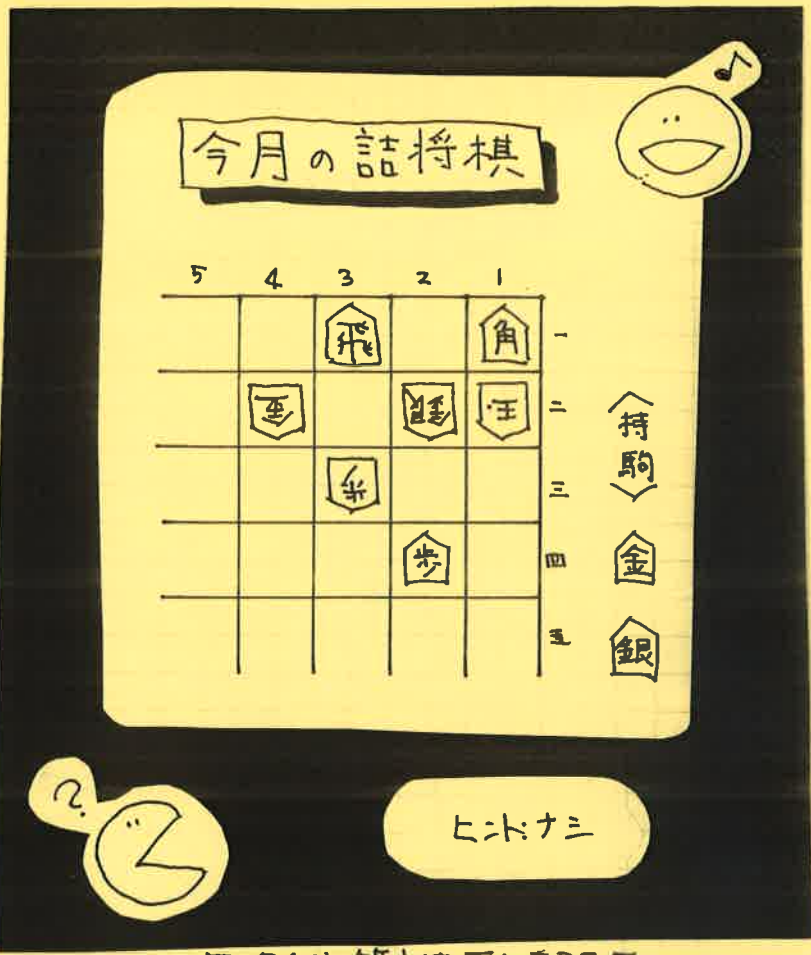 ♪
今月の詰将棋
5 4 3 2 1
飛 角 一
金 銀 玉 二
歩 三
歩 四
五
〈持駒〉
金
銀
?
ヒント:ナシ